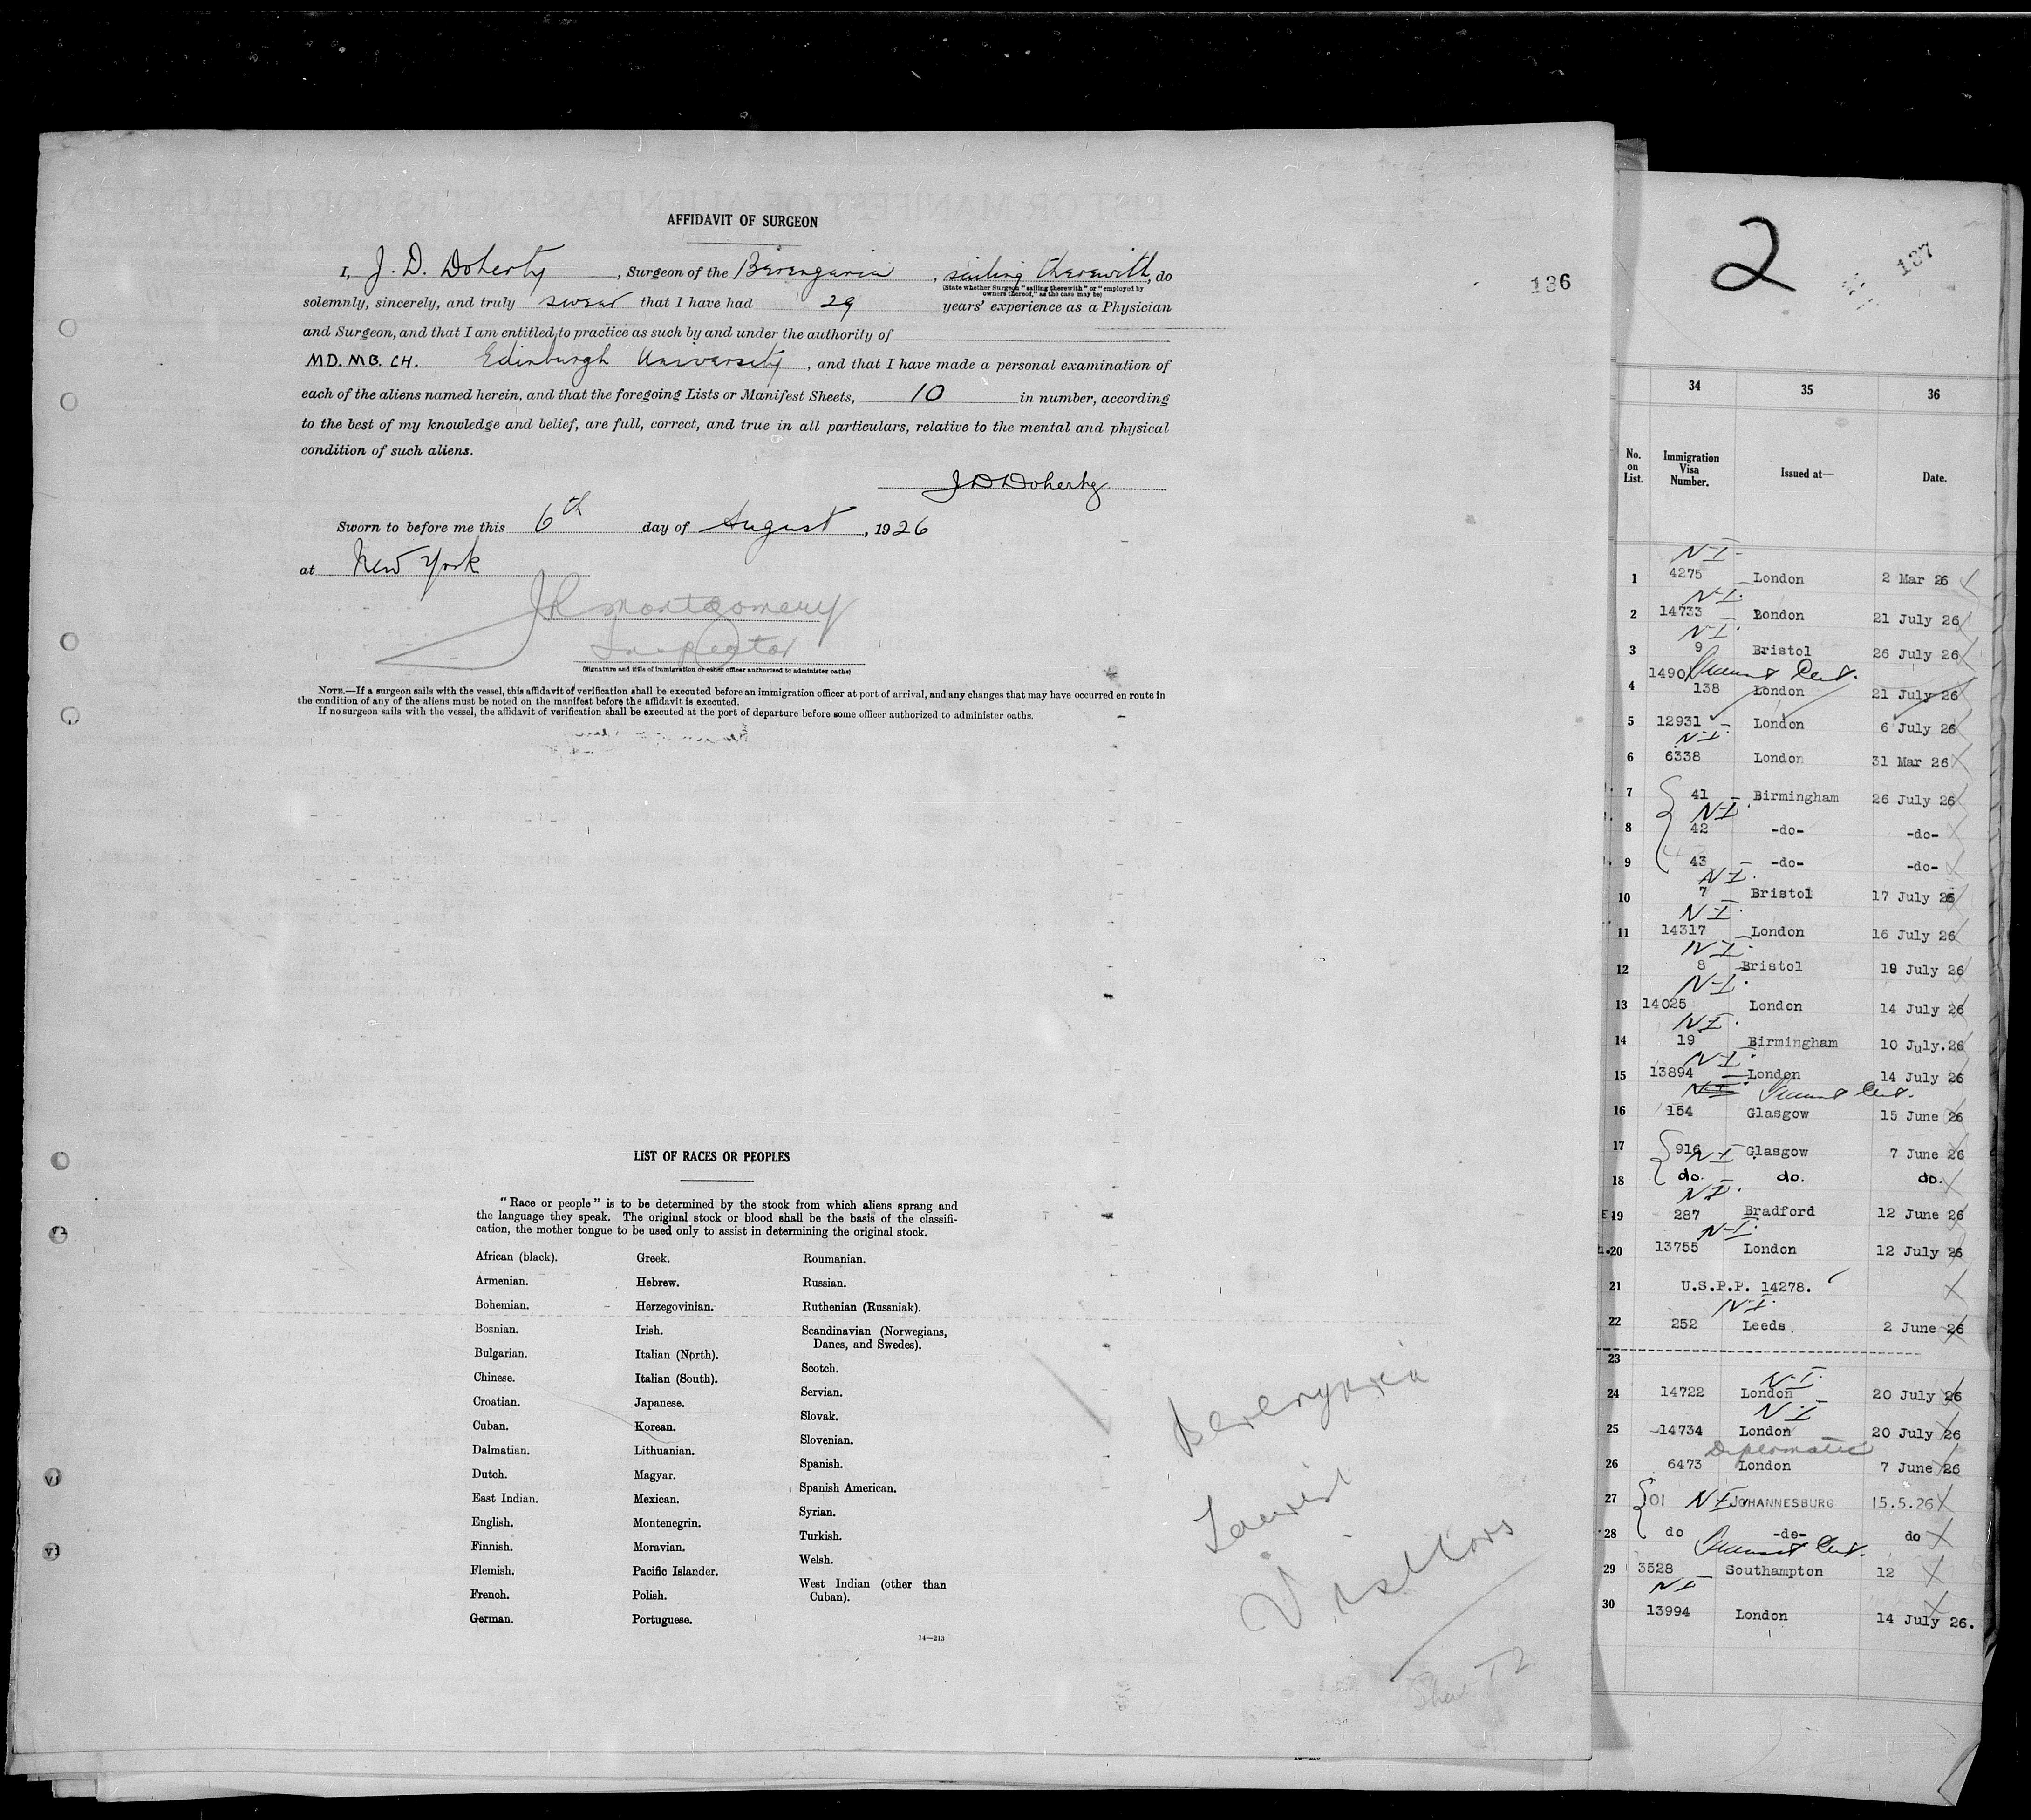 AFFIDAVIT OF SURGEON
I, J. D. Doherty, Surgeon of the Berengaria, sailing therewith, do
(State whether Surgeon "sailing therewith" or "employed by
owners thereof," as the case may be)
136
solemnly, sincerely, and truly swear that I have had 29 years' experience as a Physician
and Surgeon, and that I am entitled to practice as such by and under the authority of
MD. MB. CH. Edinburgh University, and that I have made a personal examination of
each of the aliens named herein, and that the foregoing Lists or Manifest Sheets, 10 in number, according
to the best of my knowledge and belief, are full, correct, and true in all particulars, relative to the mental and physical
condition of such aliens.
J D Doherty
Sworn to before me this 6th day of August, 1926
at New York
J R Montgomery
Inspector
(Signature and title of immigration or other officer authorized to administer oaths)
NOTE.—If a surgeon sails with the vessel, this affidavit of verification shall be executed before an immigration officer at port of arrival, and any changes that may have occurred en route in
the condition of any of the aliens must be noted on the manifest before the affidavit is executed.
If no surgeon sails with the vessel, the affidavit of verification shall be executed at the port of departure before some officer authorized to administer oaths.
LIST OF RACES OR PEOPLES
"Race or people" is to be determined by the stock from which aliens sprang and
the language they speak. The original stock or blood shall be the basis of the classifi-
cation, the mother tongue to be used only to assist in determining the original stock.
African (black).
Armenian.
Bohemian.
Bosnian.
Bulgarian.
Chinese.
Croatian.
Cuban.
Dalmatian.
Dutch.
East Indian.
English.
Finnish.
Flemish.
French.
German.
Greek.
Hebrew.
Herzegovinian.
Irish.
Italian (North).
Italian (South).
Japanese.
Korean.
Lithuanian.
Magyar.
Mexican.
Montenegrin.
Moravian.
Pacific Islander.
Polish.
Portuguese.
Roumanian.
Russian.
Ruthenian (Russniak).
Scandinavian (Norwegians,
Danes, and Swedes).
Scotch.
Servian.
Slovak.
Slovenian.
Spanish.
Spanish American.
Syrian.
Turkish.
Welsh.
West Indian (other than
Cuban).
14—213
Berengaria
Tourist
Visitors
2
137
34 35 36
No. on List. Immigration Visa Number. Issued at— Date.
N-I-
1 4275 London 2 Mar 26
N-I.
2 14733 London 21 July 26
N-I.
3 9 Bristol 26 July 26
1490
4 138 London 21 July 26
5 12931 London 6 July 26
N-I.
6 6338 London 31 Mar 26
7 41 Birmingham 26 July 26
N-I.
8 42 -do- -do-
9 43 -do- -do-
N-I.
10 7 Bristol 17 July 26
N-I.
11 14317 London 16 July 26
N-I.
12 8 Bristol 19 July 26
N-I.
13 14025 London 14 July 26
N-I.
14 19 Birmingham 10 July.26
N-I.
15 13894 London 14 July 26
N-I.
16 154 Glasgow 15 June 26
17 916 Glasgow 7 June 26
N-I.
18 do. do. do.
N-I.
19 287 Bradford 12 June 26
N-I.
20 13755 London 12 July 26
21 U.S.P.P. 14278.
N-I.
22 252 Leeds 2 June 26
23
N-I.
24 14722 London 20 July 26
N-I
25 14734 London 20 July 26
Diplomatic
26 6473 London 7 June 26
27 101 N-I JOHANNESBURG 15.5.26
28 do -do- do
29 3528 Southampton 12
N-I
30 13994 London 14 July 26.